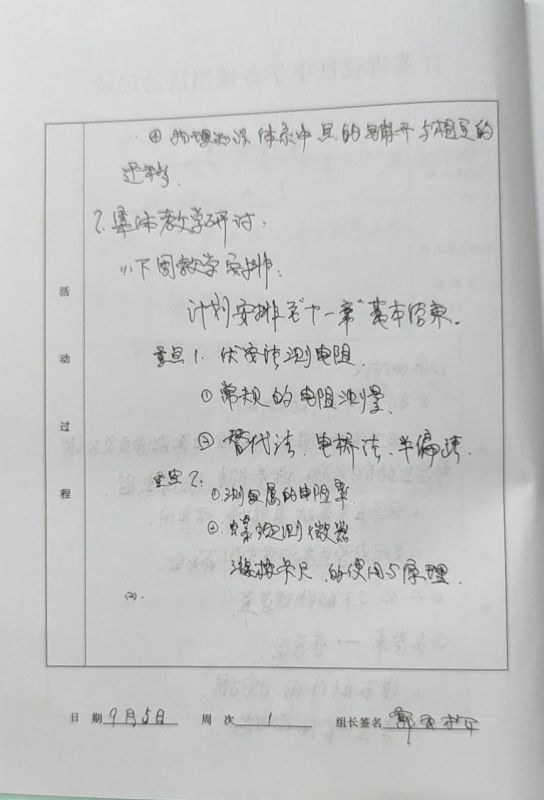 ④ 物理知识体系中点的展开与相互的
迁移.
2. 集体教学研讨:
(1) 下周教学安排:
计划安排至"十一章"基本结束。
重点1. 伏安法测电阻
① 常规的电阻测量.
② 替代法、电桥法、半偏法.
重点2:
①测金属的电阻率.
②. 螺旋测微器
游标卡尺 的使用与原理.
(2).
活
动
过
程
日 期 9月5日 周 次 1 组长签名